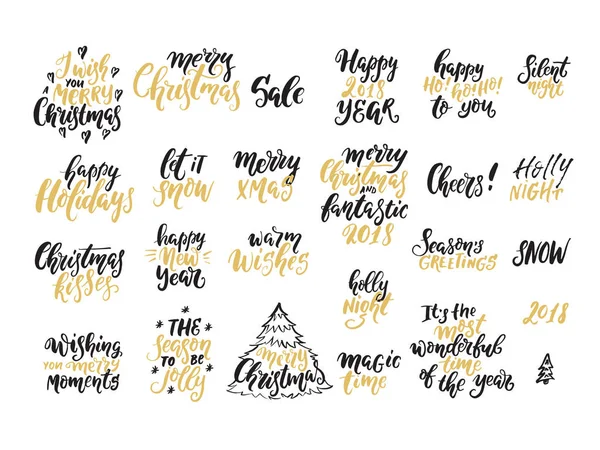 I wish
you
a Merry
Christmas
merry
Christmas
Sale
Happy
2018
YEAR
happy
Ho! ho! Ho!
to you
Silent
night
happy
Holidays
let it
snow
merry
XMAS
merry
Christmas
AND
fantastic
2018
Cheers!
Holly
NIGHT
Christmas
kisses
happy
New
Year
warm
wishes
holly
Night
Season's
GREETINGS
SNOW
Wishing
you merry
Moments
THE
Season
TO BE
Jolly
merry
Christmas
magic
time
It's the
most
wonderful
time
of the year
2018